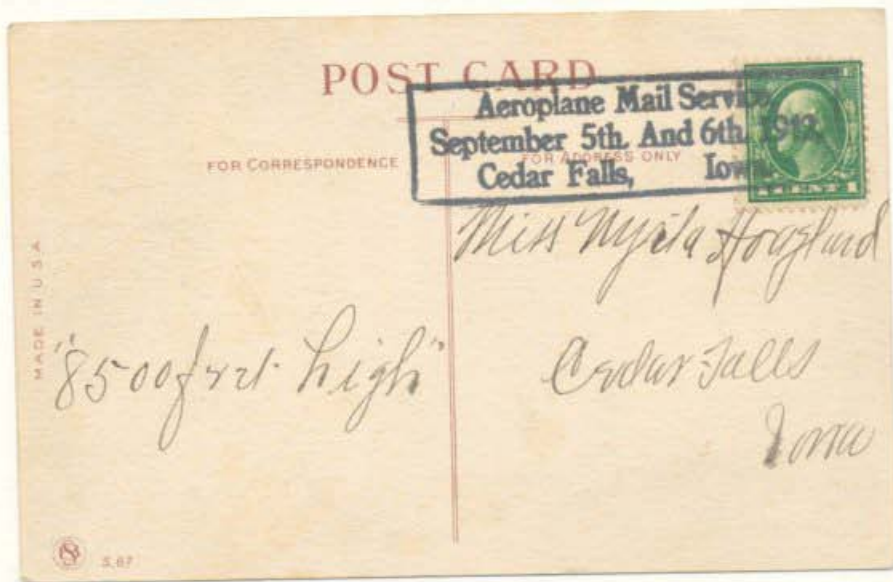 POST CARD
Aeroplane Mail Service
September 5th. And 6th. 1912.
Cedar Falls, Iowa.
FOR CORRESPONDENCE
FOR ADDRESS ONLY
MADE IN U.S.A
"8500 feet high"
Miss Hoagland
Cedar Falls
Iowa
S. 67